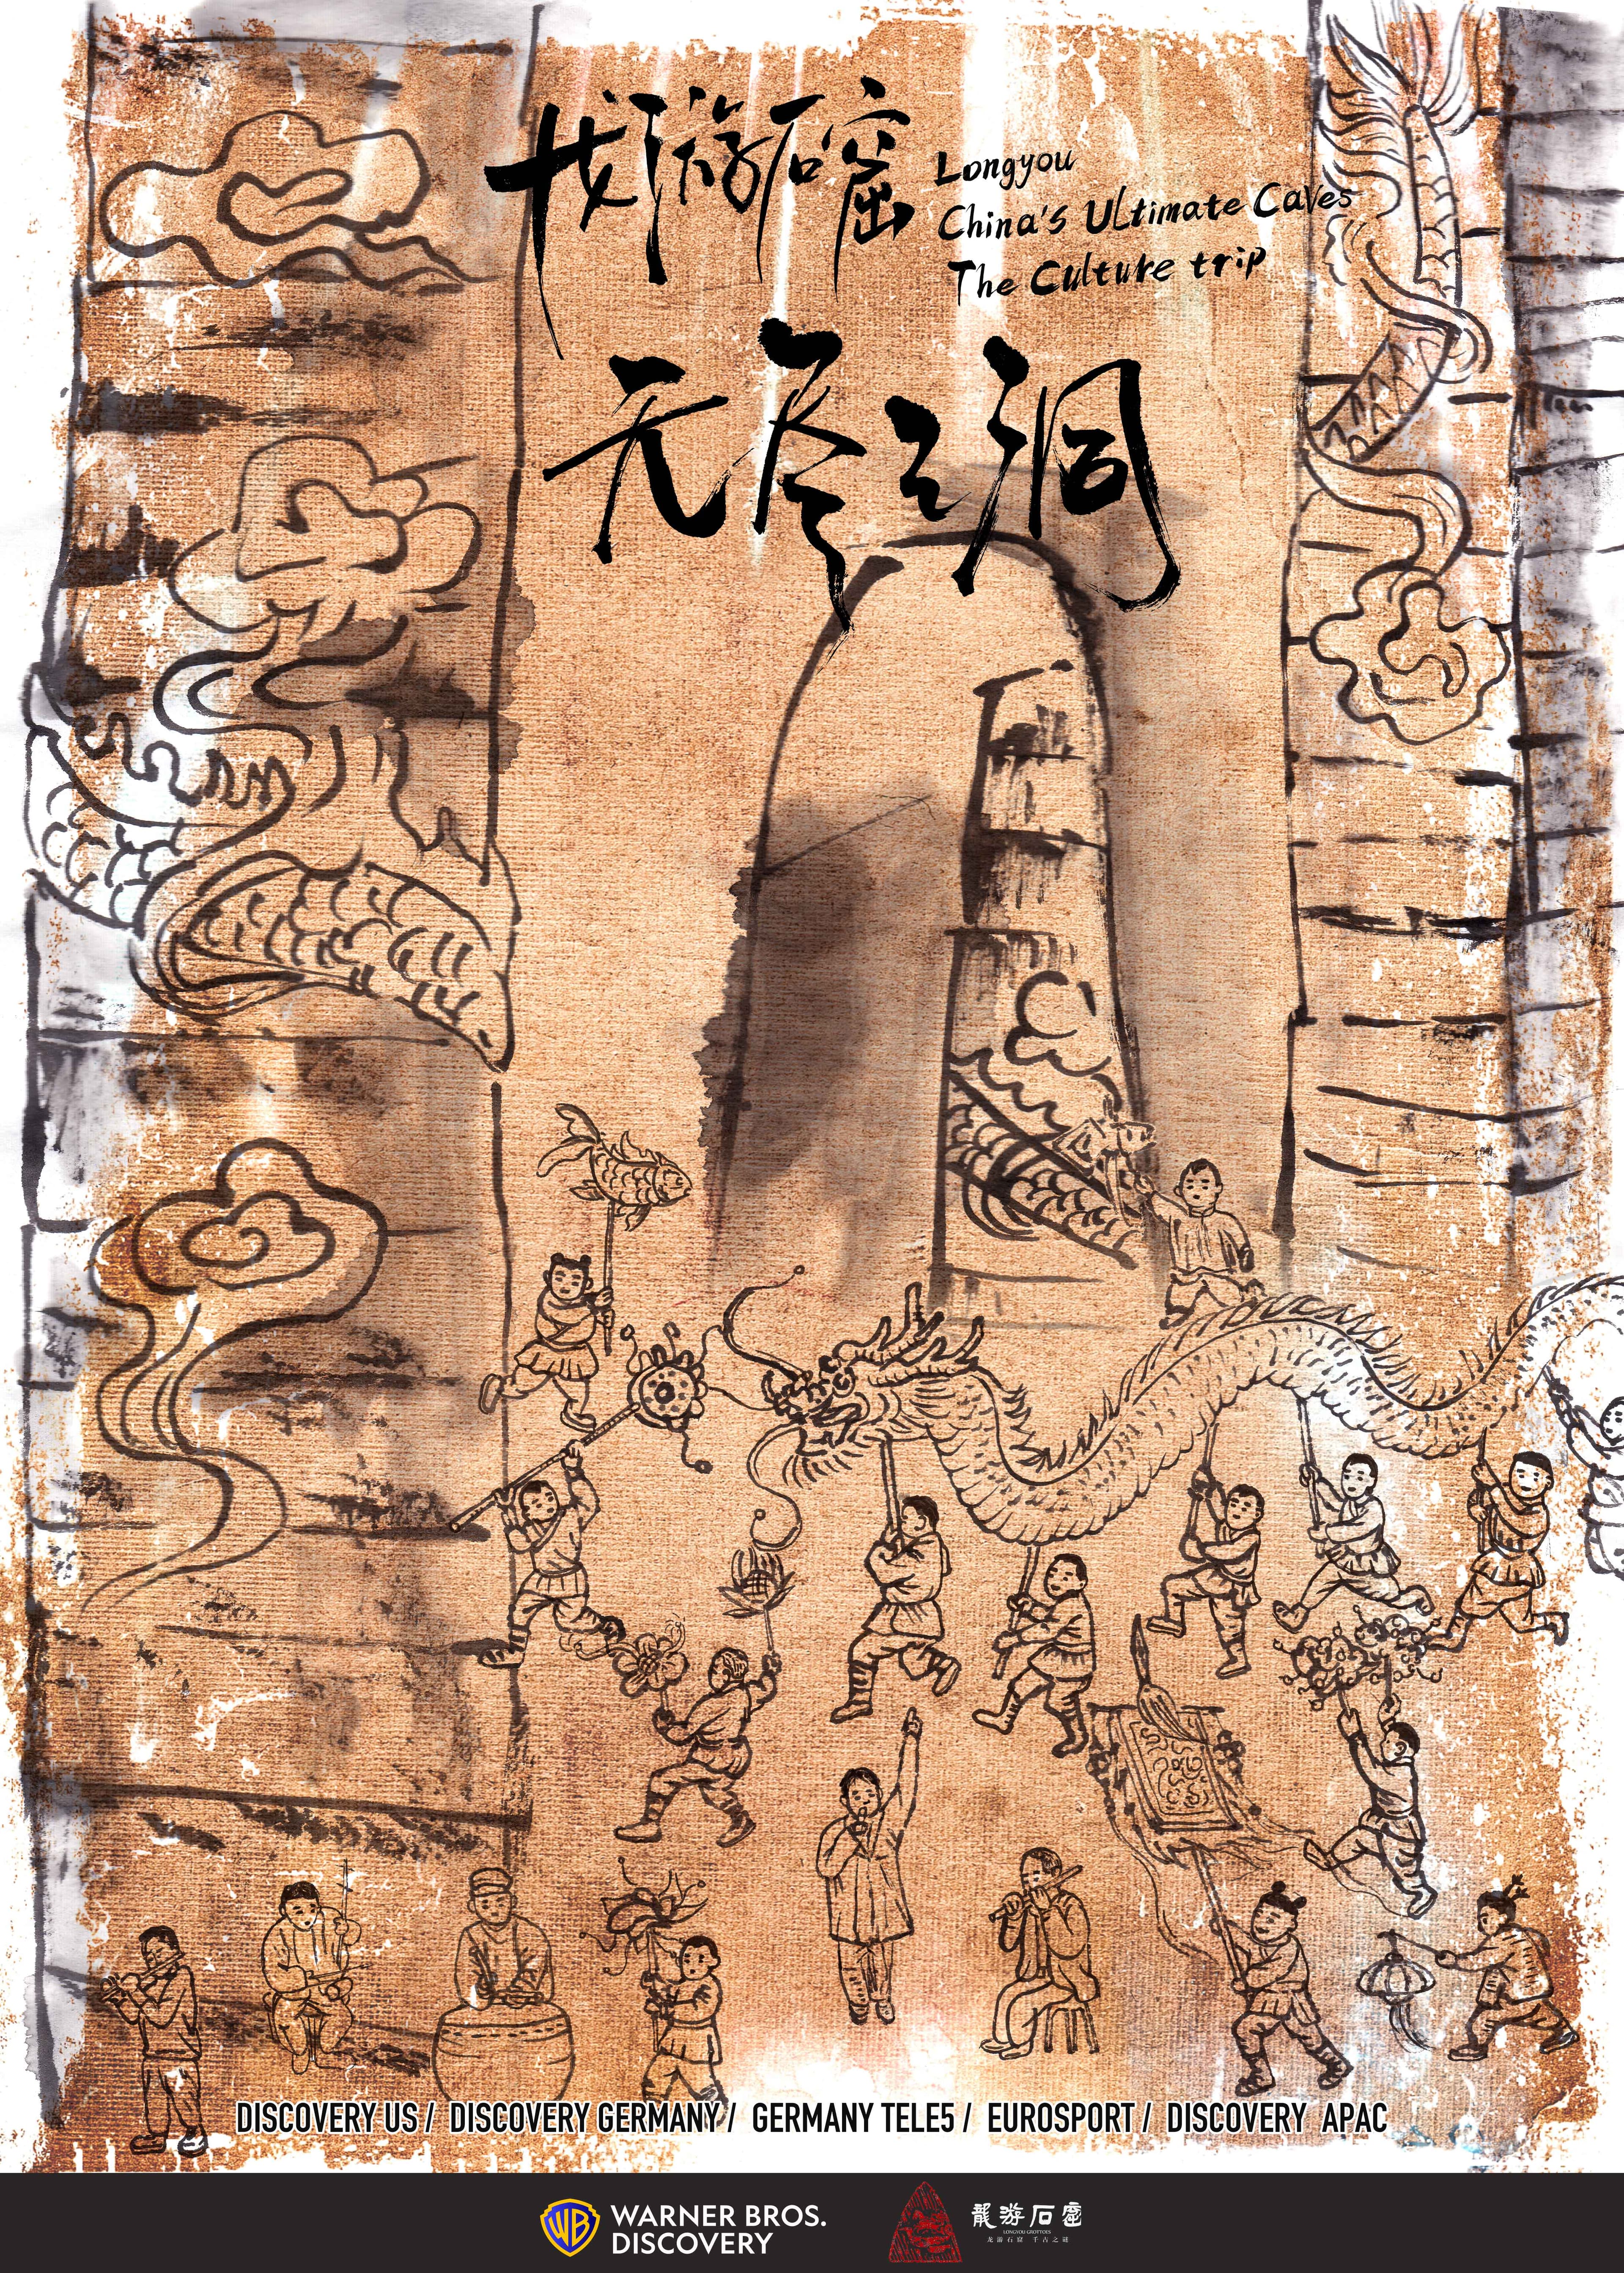 龙游石窟
Longyou
China's Ultimate Caves
The Culture trip
无尽之洞
DISCOVERY US / DISCOVERY GERMANY / GERMANY TELE5 / EUROSPORT / DISCOVERY APAC
WB
WARNER BROS.
DISCOVERY
龍游石窟
LONGYOU GROTTOES
龙游石窟 千古之谜